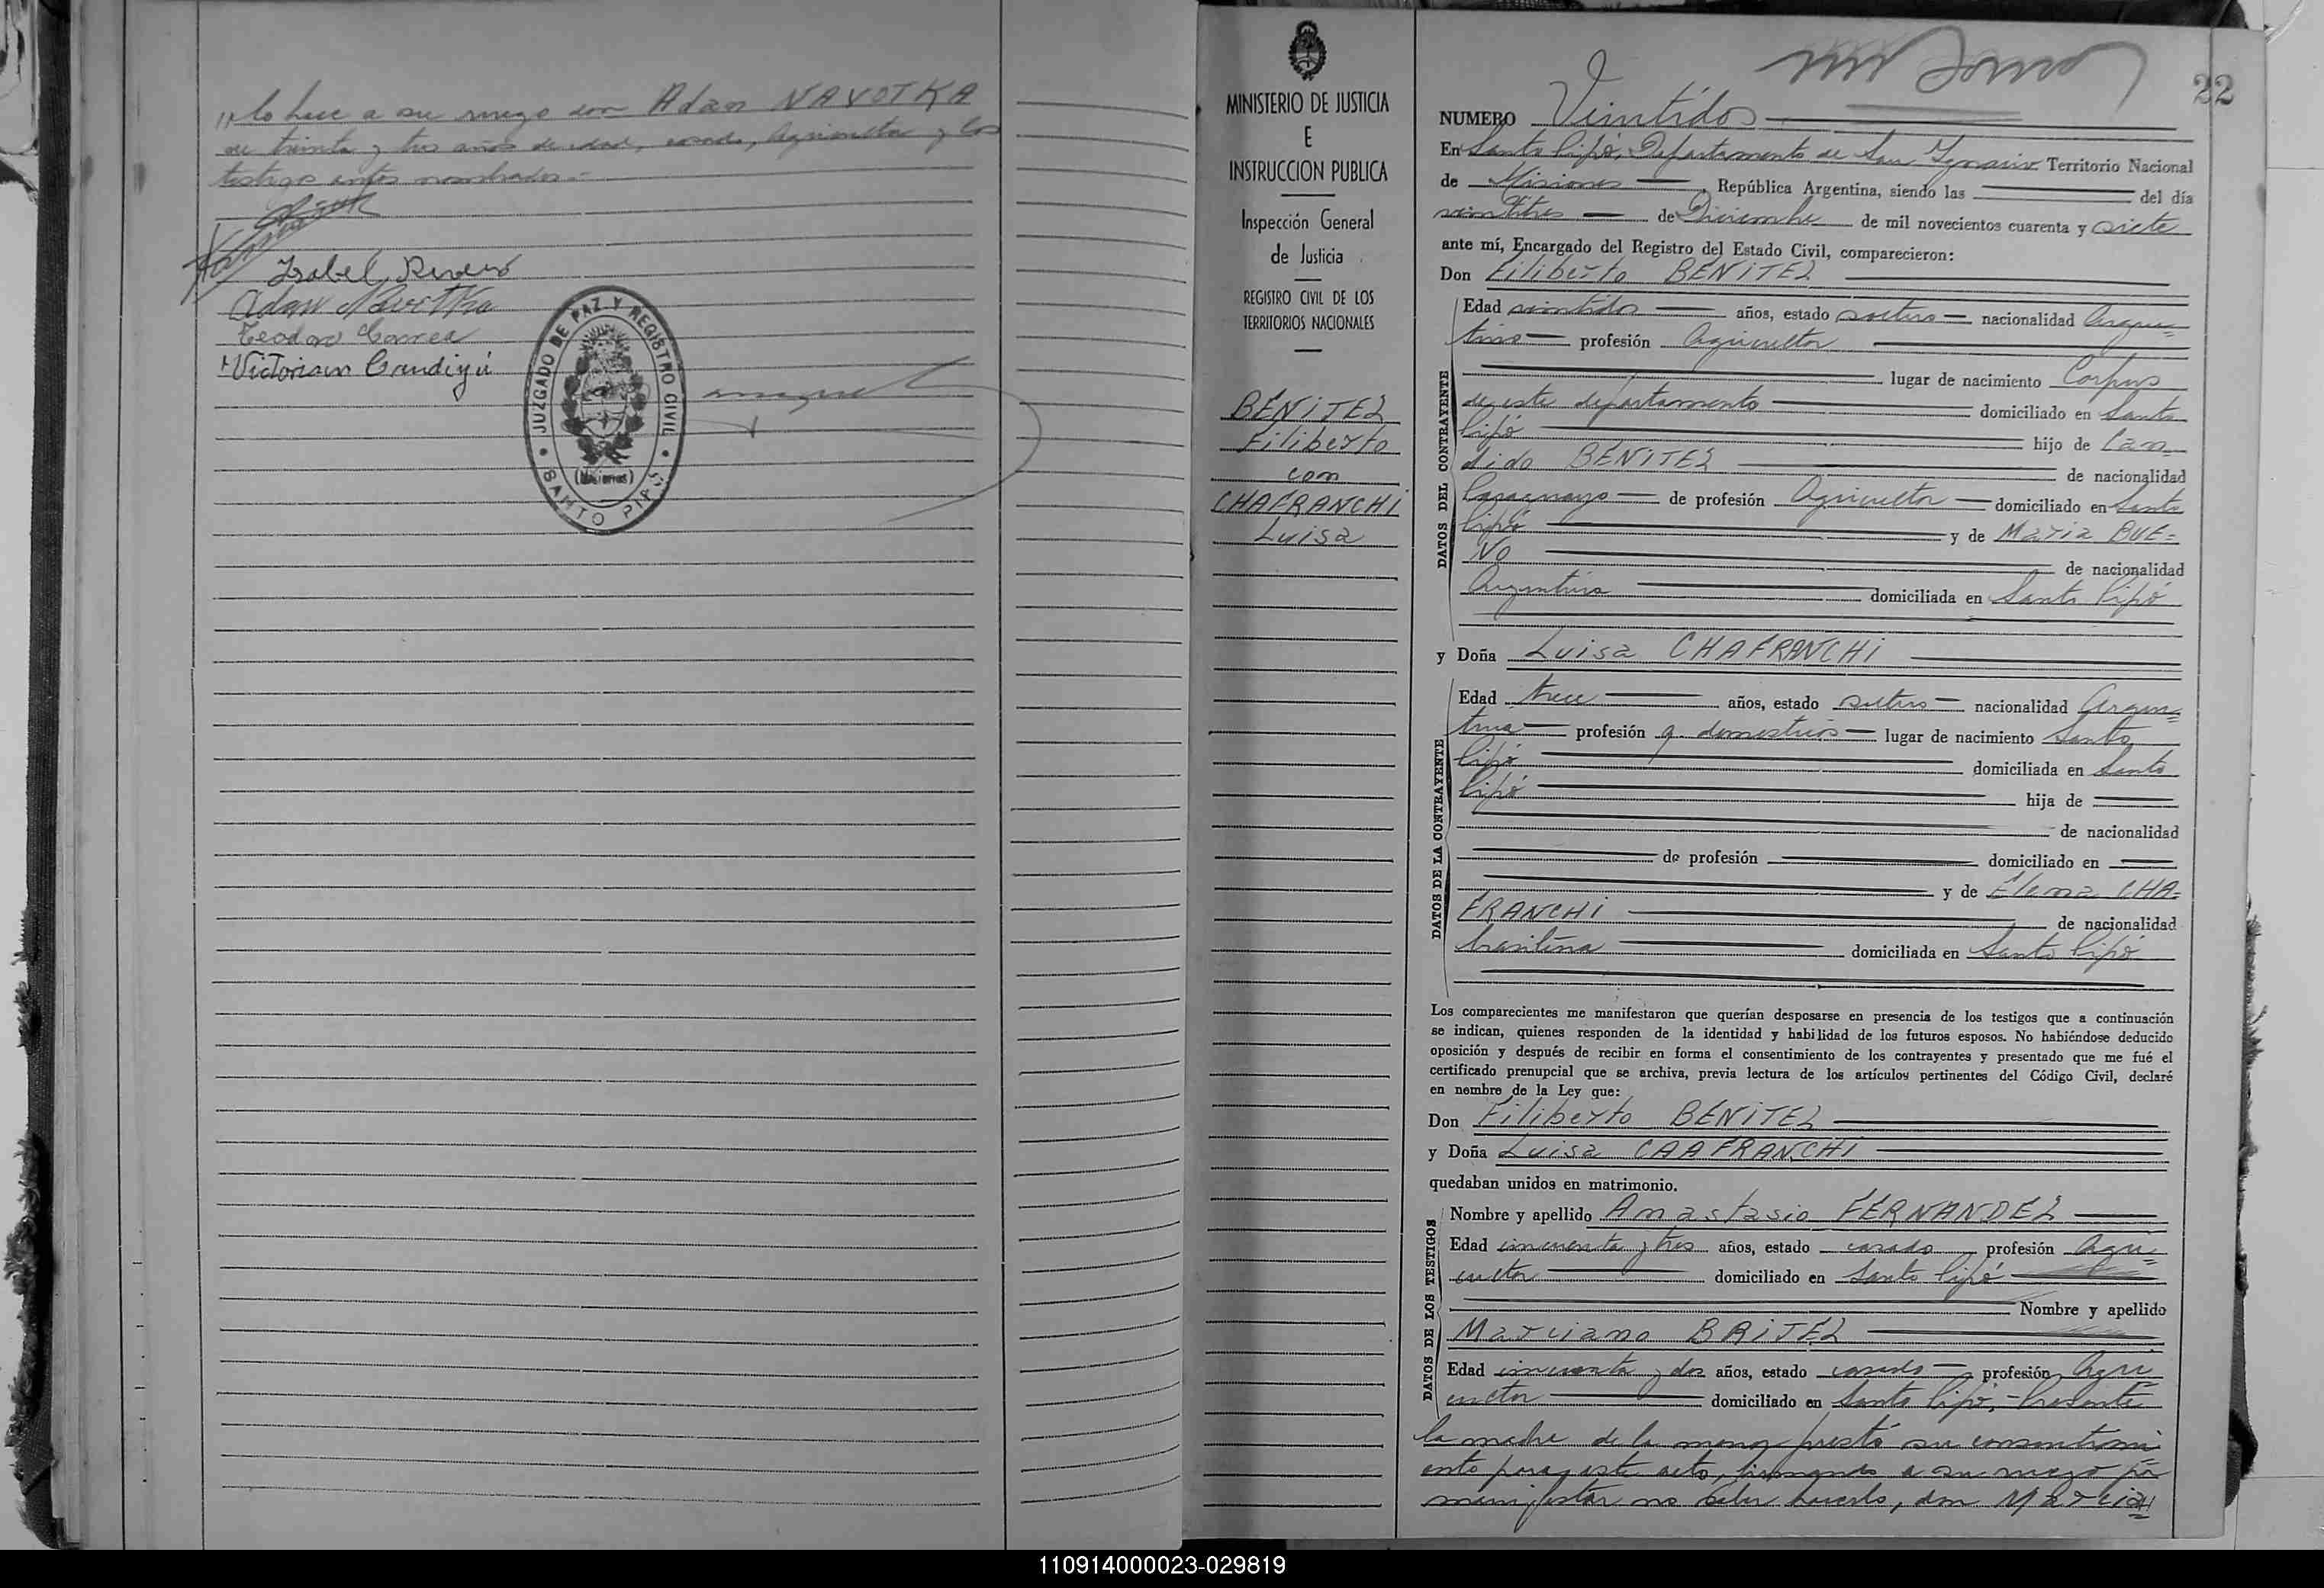 ,, lo hace a su ruego don Adan NAVOTKA
de treinta y tres años de edad, casado, Agricultor y los
testigos antes nombrados.-
Isabel Rivero
Adan Navotka
Teodoro Correa
Victorian Cendiyú
JUZGADO DE PAZ Y REGISTRO CIVIL
(Misiones)
SANTO PIPÓ
MINISTERIO DE JUSTICIA
E
INSTRUCCION PUBLICA
Inspección General
de Justicia
REGISTRO CIVIL DE LOS
TERRITORIOS NACIONALES
BENITEZ
Filiberto
con
CHAFRANCHI
Luisa
22
NUMERO Veintidos
En Santo Pipó, Departamento de San Ignacio Territorio Nacional
de Misiones, República Argentina, siendo las del día
veintitres de Diciembre de mil novecientos cuarenta y siete
ante mí, Encargado del Registro del Estado Civil, comparecieron:
Don Filiberto BENITEZ
DATOS DEL CONTRAYENTE
Edad veintidos años, estado soltero nacionalidad Argen=
tino profesión Agricultor
lugar de nacimiento Corpus
de este departamento domiciliado en Santo
Pipó hijo de Can
dido BENITEZ de nacionalidad
Paraguayo de profesión Agricultor domiciliado en Santo
Pipó y de Maria BUE=
NO de nacionalidad
Argentina domiciliada en Santo Pipó
y Doña Luisa CHAFRANCHI
DATOS DE LA CONTRAYENTE
Edad trece años, estado soltera nacionalidad Argen=
tina profesión q. domesticos lugar de nacimiento Santo
Pipó domiciliada en Santo
Pipó hija de
de nacionalidad
de profesión domiciliado en
y de Elena CHA=
FRANCHI de nacionalidad
brasilena domiciliada en Santo Pipó
Los comparecientes me manifestaron que querían desposarse en presencia de los testigos que a continuación
se indican, quienes responden de la identidad y habilidad de los futuros esposos. No habiéndose deducido
oposición y después de recibir en forma el consentimiento de los contrayentes y presentado que me fué el
certificado prenupcial que se archiva, previa lectura de los artículos pertinentes del Código Civil, declaré
en nombre de la Ley que:
Don Filiberto BENITEZ
y Doña Luisa CAAFRANCHI
quedaban unidos en matrimonio.
DATOS DE LOS TESTIGOS
Nombre y apellido Anastasio FERNANDEZ
Edad cincuenta y tres años, estado casado profesión Agri=
cultor domiciliado en Santo Pipó
Nombre y apellido
Marciano BRITEZ
Edad cincuenta y dos años, estado casado profesión Agri
cultor domiciliado en Santo Pipó.- Presente
la madre de la menor prestó su consentimi
ento para este acto, firmando a su ruego por
manifestar no saber hacerlo, don Marcia
110914000023-029819